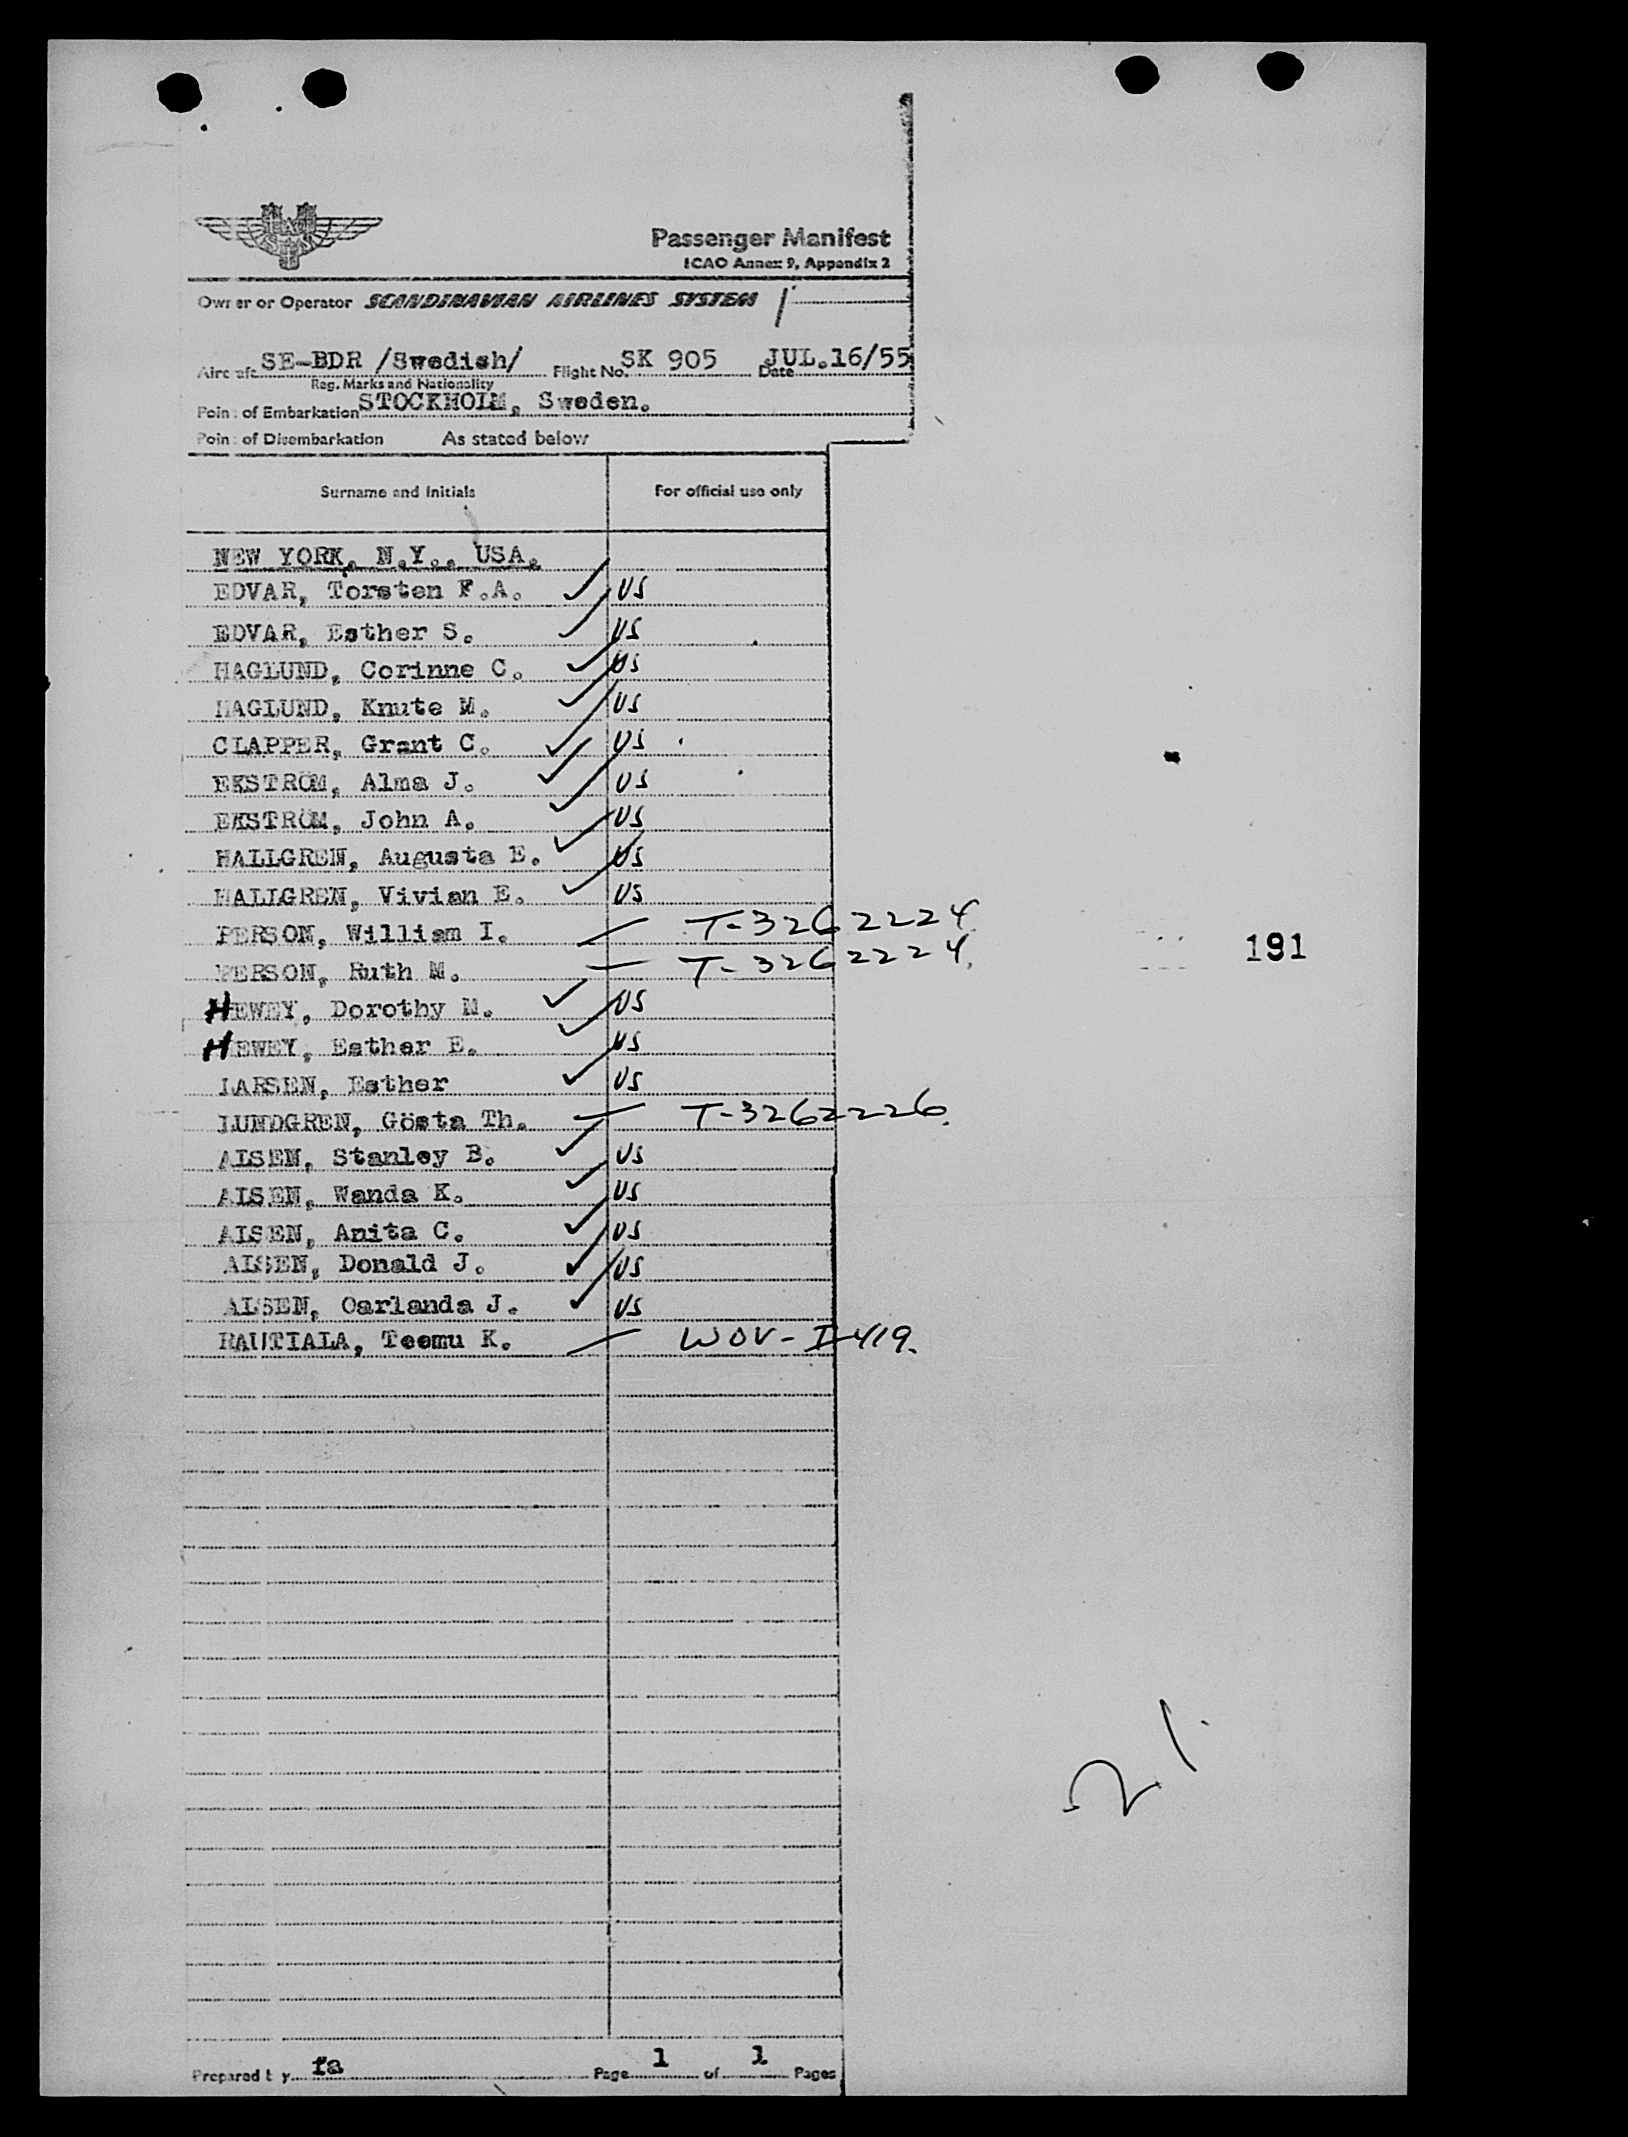 Passenger Manifest
ICAO Annex 9, Appendix 2
Owner or Operator SCANDINAVIAN AIRLINES SYSTEM
Aircraft SE-BDR /Swedish/ Flight No. SK 905 Date JUL.16/55
Reg. Marks and Nationality
Point of Embarkation STOCKHOLM, Sweden.
Point of Disembarkation As stated below
Surname and Initials For official use only
NEW YORK, N.Y., USA.
EDVAR, Torsten F.A. ✓ US
EDVAR, Esther S. ✓ US
HAGLUND, Corinne C. ✓ US
HAGLUND, Knute M. ✓ US
CLAPPER, Grant C. ✓ US
EKSTRÖM, Alma J. ✓ US
EKSTRÖM, John A. ✓ US
HALLGREN, Augusta E. ✓ US
HALLGREN, Vivian E. ✓ US
PERSON, William I. — T-3262224
PERSON, Ruth M. — T-3262224.
HEWEY, Dorothy M. ✓ US
HEWEY, Esther E. ✓ US
LARSEN, Esther ✓ US
LUNDGREN, Gösta Th. — T-3262226.
ALSEN, Stanley B. ✓ US
ALSEN, Wanda K. ✓ US
ALSEN, Anita C. ✓ US
ALSEN, Donald J. ✓ US
ALSEN, Oarlanda J. ✓ US
RAUTIALA, Teemu K. — WOV-I-419.
191
21
Prepared by fa Page 1 of 1 Pages